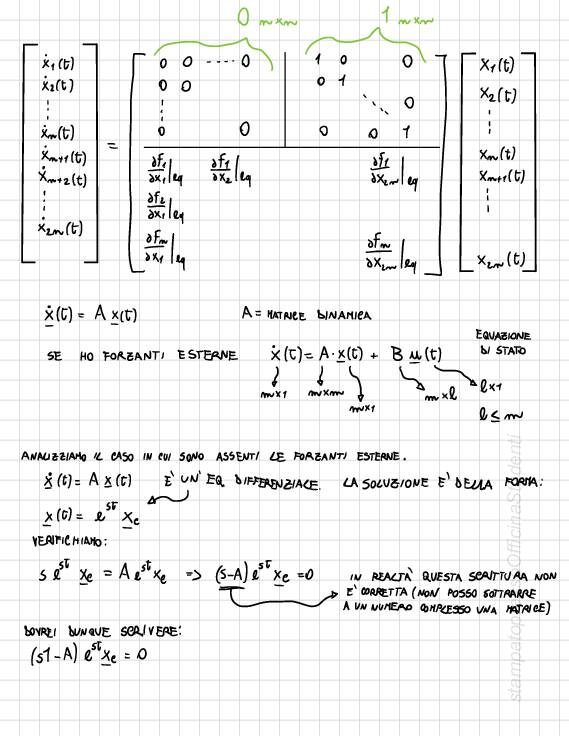 0 m×m 1 m×m
ẋ1(t) 0 0 ---- 0 1 0 0 x1(t)
ẋ2(t) 0 0 0 1 x2(t)
0
ẋm(t) = 0 0 0 0 1 xm(t)
ẋm+1(t) ∂f1/∂x1|eq ∂f1/∂x2|eq ∂f1/∂x2m|eq xm+1(t)
ẋm+2(t)
∂f2/∂x1|eq
ẋ2m(t) ∂fm/∂x1|eq ∂fm/∂x2m|eq x2m(t)
ẋ(t) = A x(t) A = MATRICE DINAMICA
SE HO FORZANTI ESTERNE ẋ(t) = A·x(t) + B u(t) EQUAZIONE DI STATO
m×1 m×m m×1 m×l l×1
l ≤ m
ANALIZZIAMO IL CASO IN CUI SONO ASSENTI LE FORZANTI ESTERNE.
ẋ(t) = A x(t) E' UN' EQ. DIFFERENZIALE. LA SOLUZIONE E' DELLA FORMA:
x(t) = e^st xe
VERIFICHIAMO:
s e^st xe = A e^st xe => (s-A) e^st xe = 0 IN REALTÀ QUESTA SCRITTURA NON
E' CORRETTA (NON POSSO SOTTRARRE
A UN NUMERO COMPLESSO UNA MATRICE)
DOVREI DUNQUE SCRIVERE:
(s1-A) e^st xe = 0